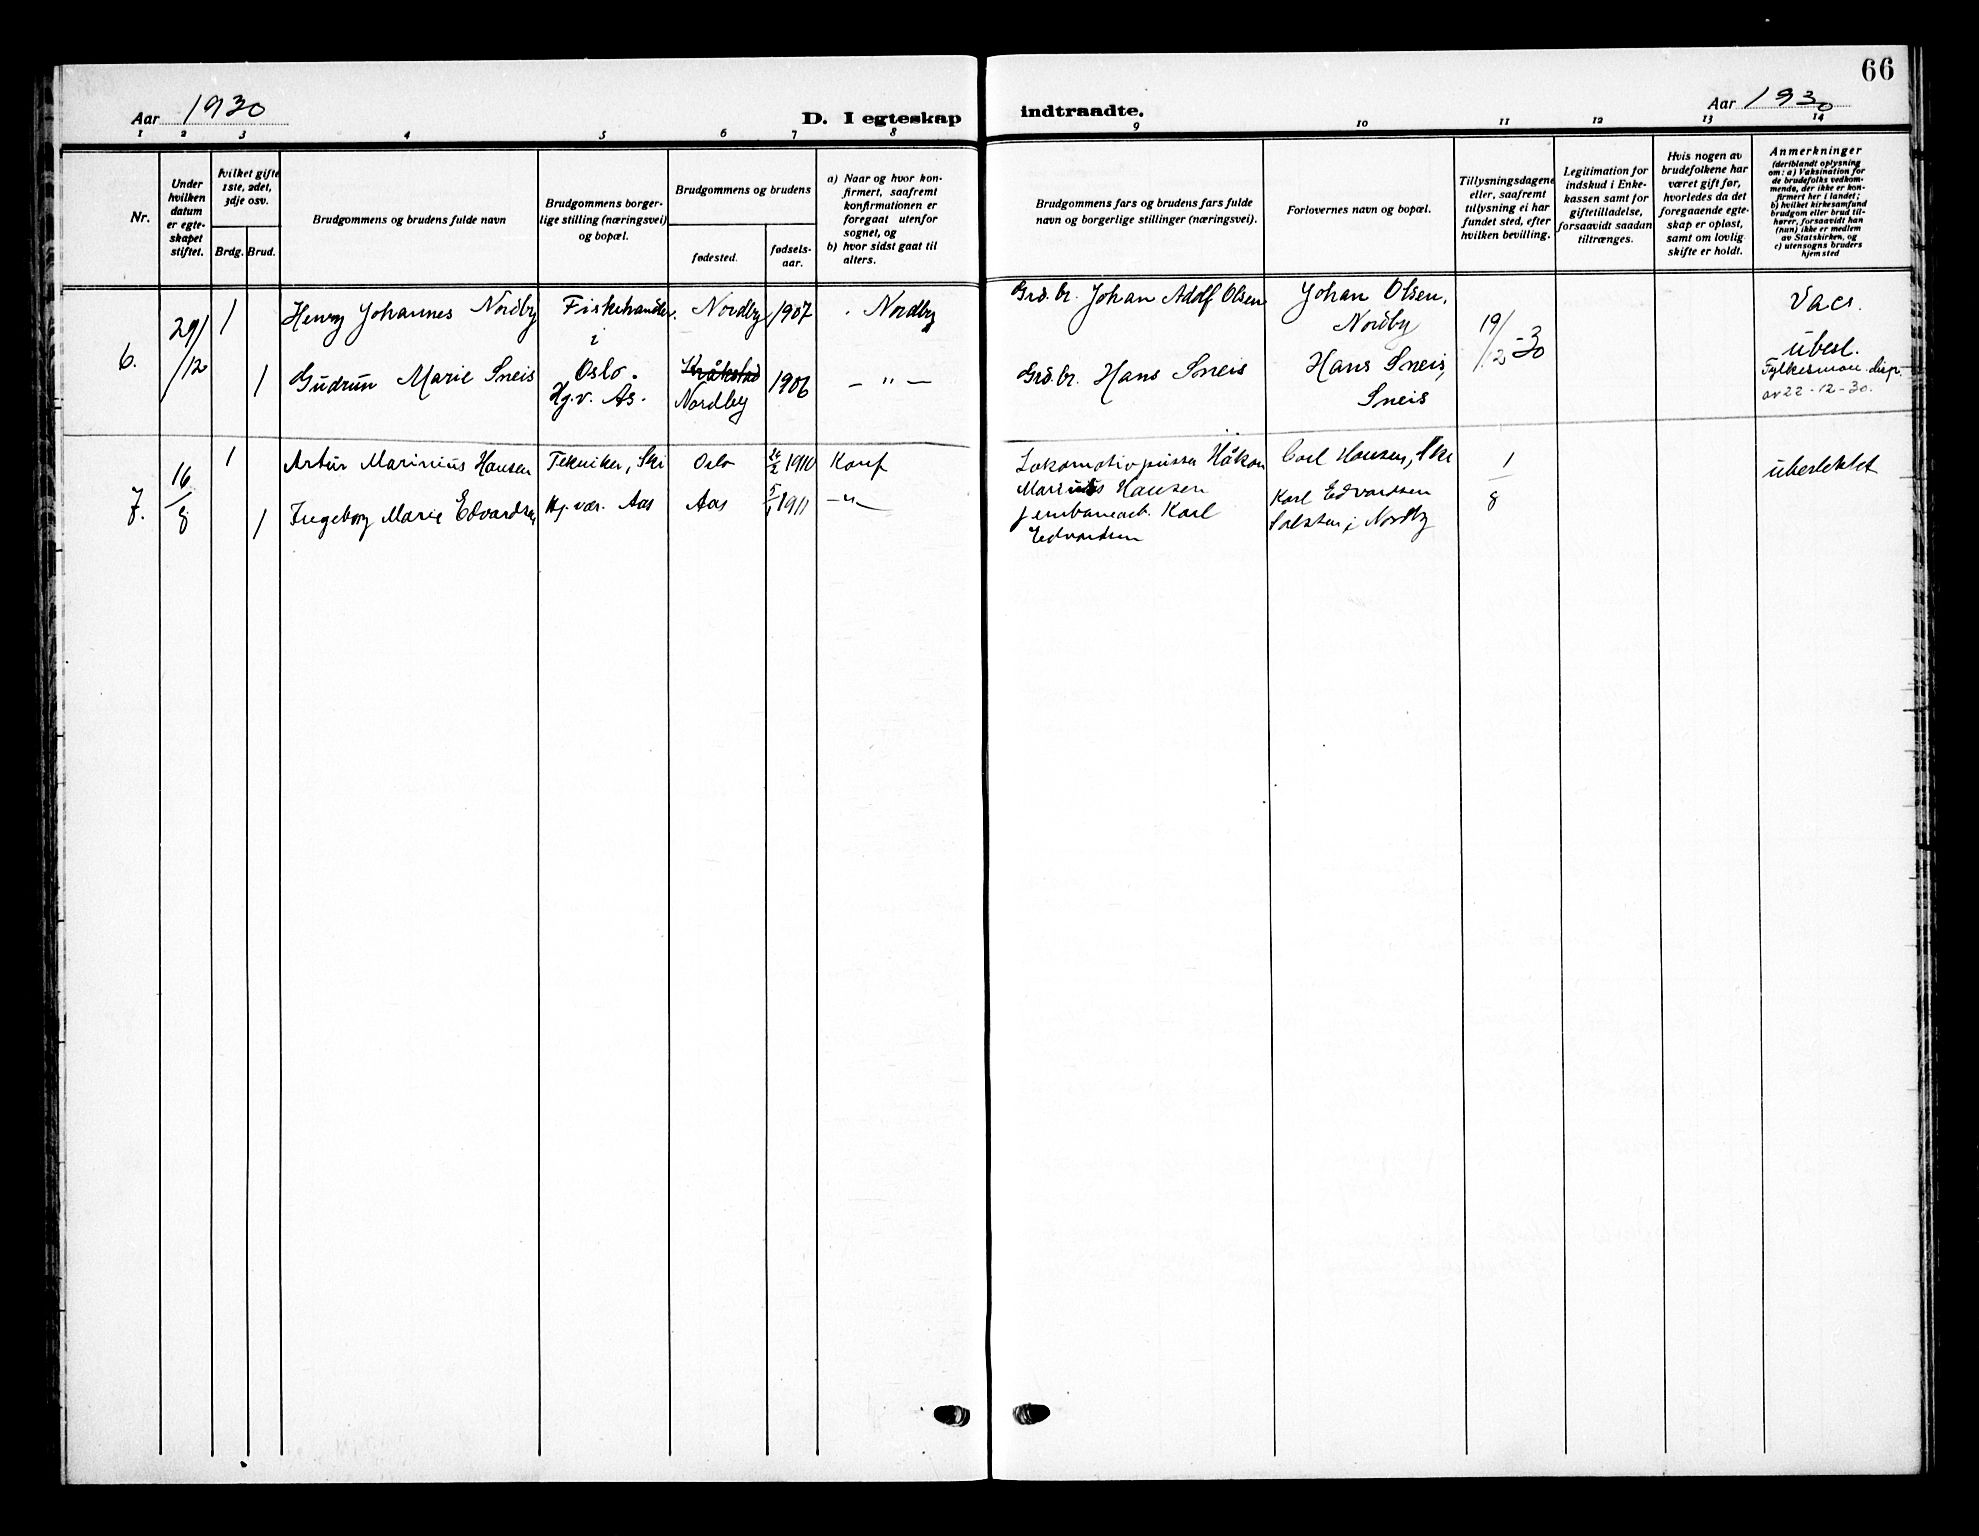 66
Aar 1930
D. I egteskap
indtraadte.
Aar 1930
1 2 3 4 5 6 7 8 9 10 11 12 13 14
Nr.
Under
hvilken
datum
er egte-
skapet
stiftet.
hvilket gifte
1ste, 2det,
3dje osv.
Brdg. Brud.
Brudgommens og brudens fulde navn
Brudgommens borger-
lige stilling (næringsvei)
og bopæl.
Brudgommens og brudens
fødested.
fødsels-
aar.
a) Naar og hvor kon-
firmert, saafremt
konfirmationen er
foregaat utenfor
sognet, og
b) hvor sidst gaat til
alters.
Brudgommens fars og brudens fars fulde
navn og borgerlige stillinger (næringsvei).
Forlovernes navn og bopæl.
Tillysningsdagene
eller, saafremt
tillysning ei har
fundet sted, efter
hvilken bevilling.
Legitimation for
indskud i Enke-
kassen samt for
giftetilladelse,
forsaavidt saadan
tiltrænges.
Hvis nogen av
brudefolkene har
været gift før,
hvorledes da det
foregaaende egte-
skap er opløst,
samt om lovlig
skifte er holdt.
Anmerkninger
(deriblandt oplysning
om: a) Vaksination for
de brudefolks vedkom-
mende, der ikke er kon-
firmert her i landet;
b) hvilket kirkesamfund
brudgom eller brud til-
hører, forsaavidt han
(hun) ikke er medlem
av Statskirken, og
c) utensogns bruders
hjemsted
6.
29/
/12
1
Henry Johannes Nordby
Fiskehandler
i
Oslo.
Nordby
1907
Nordby
1
Gudrun Marie Sneis
Hj.v. Ås.
Kråkstad
Nordby
1906
— " —
Grd. br. Johan Adolf Olsen
Grd. br. Hans Sneis
Johan Olsen,
Nordby
Hans Sneis,
Sneis
19/
/12 -30
Vacs.
ubesl.
Fylkesman. disp.
av 22-12-30.
7.
16
/
8
1
Artur Marinius Hansen
Tekniker, Ski
Oslo
1910
Konf
1
Ingeborg Marie Edvardsen
Hj. vær. Aas
Aas
5/1 1911
— " —
Lokomotivpusser Håkon
Marinius Hansen
jernbanearb. Karl
Edvardsen
Carl Hansen, Ski
Karl Edvardsen
Nordby
1
/
8
ubeslektet